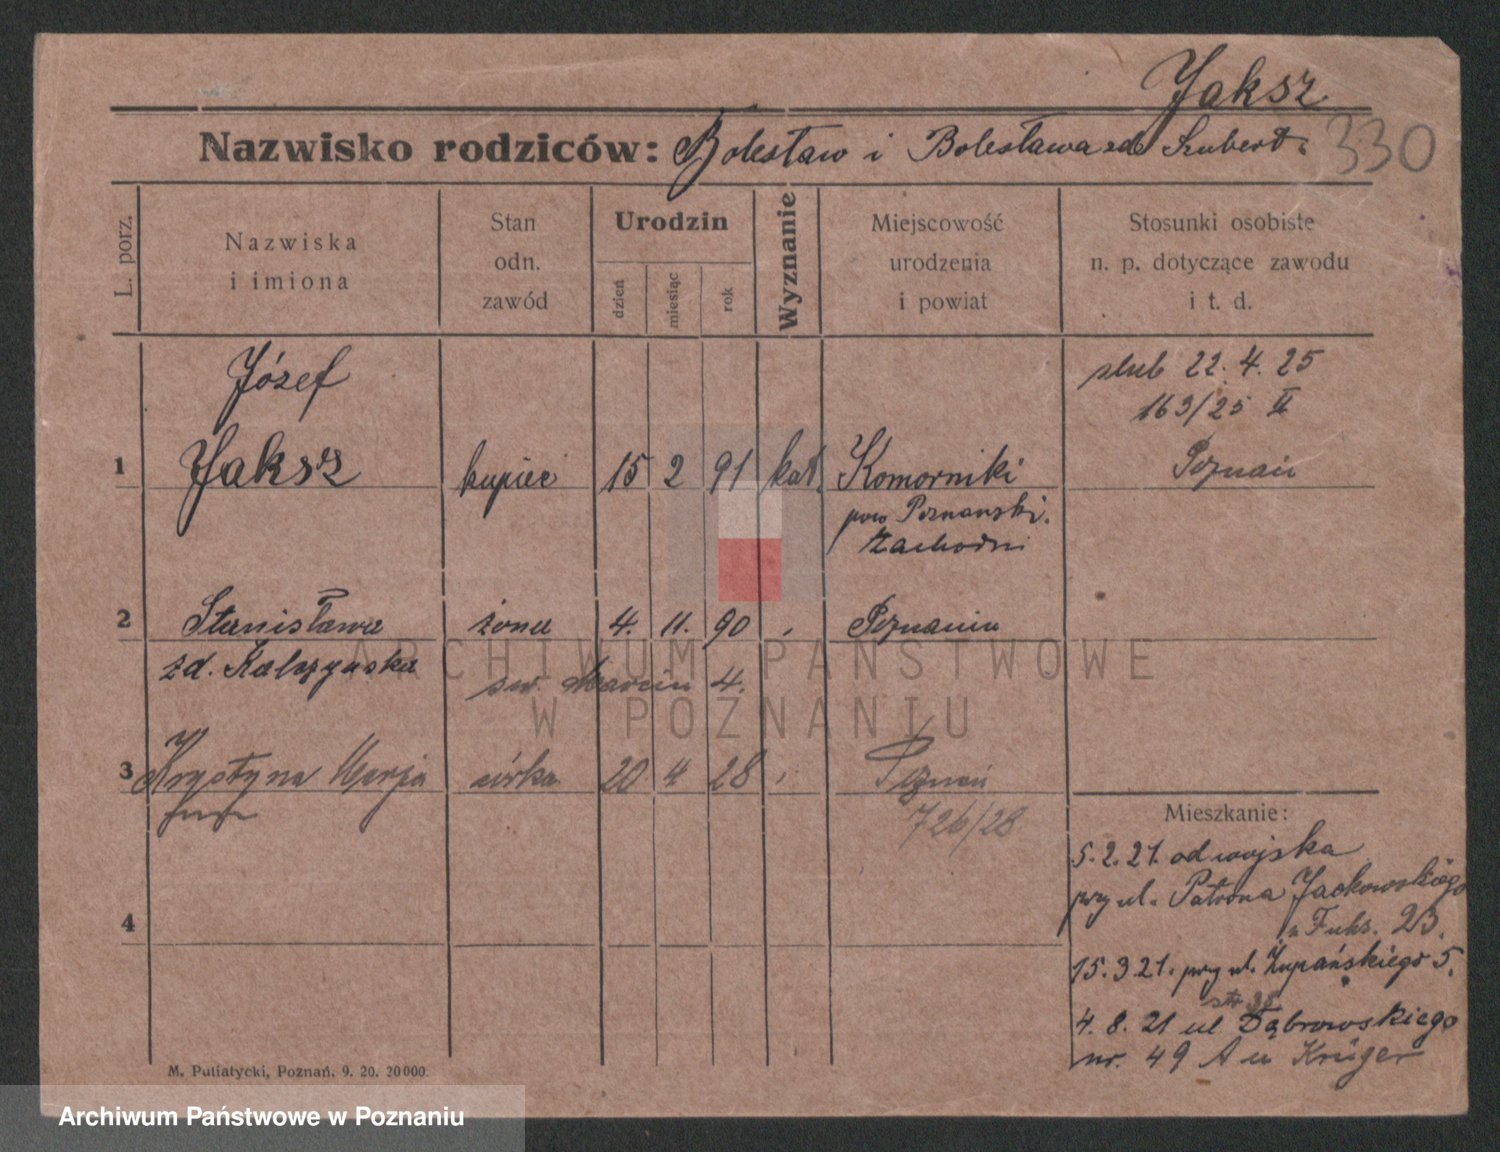 Jaksz
Nazwisko rodziców: Bolesław i Bolesława zd. Szubert.
330
L. porz.
Nazwiska
i imiona
Stan
odn.
zawód
Urodzin
dzień
miesiąc
rok
Wyznanie
Miejscowość
urodzenia
i powiat
Stosunki osobiste
n. p. dotyczące zawodu
i t. d.
Józef
1 Jaksz kupiec 15 2 91 kat. Komorniki
pow Poznański.
Zachodni
ślub 22. 4. 25
163/25 II
Poznań
2 Stanisława żona 4. 11. 90 Poznaniu
zd. Kalczyńska
św. Marcin 4.
3 Krystyna Marja córka 20 4 28 Poznań
726/28
4
Mieszkanie:
5.2.21. od wojska
przy ul. Patrona Jackowskiego
u Fuks. 23.
15.3.21. przy ul. Żupańskiego 5.
4.8.21 ul Dąbrowskiego
nr. 49 A u Krüger
M. Putiatycki, Poznań. 9. 20. 20000.
ARCHIWUM PAŃSTWOWE
W POZNANIU
Archiwum Państwowe w Poznaniu